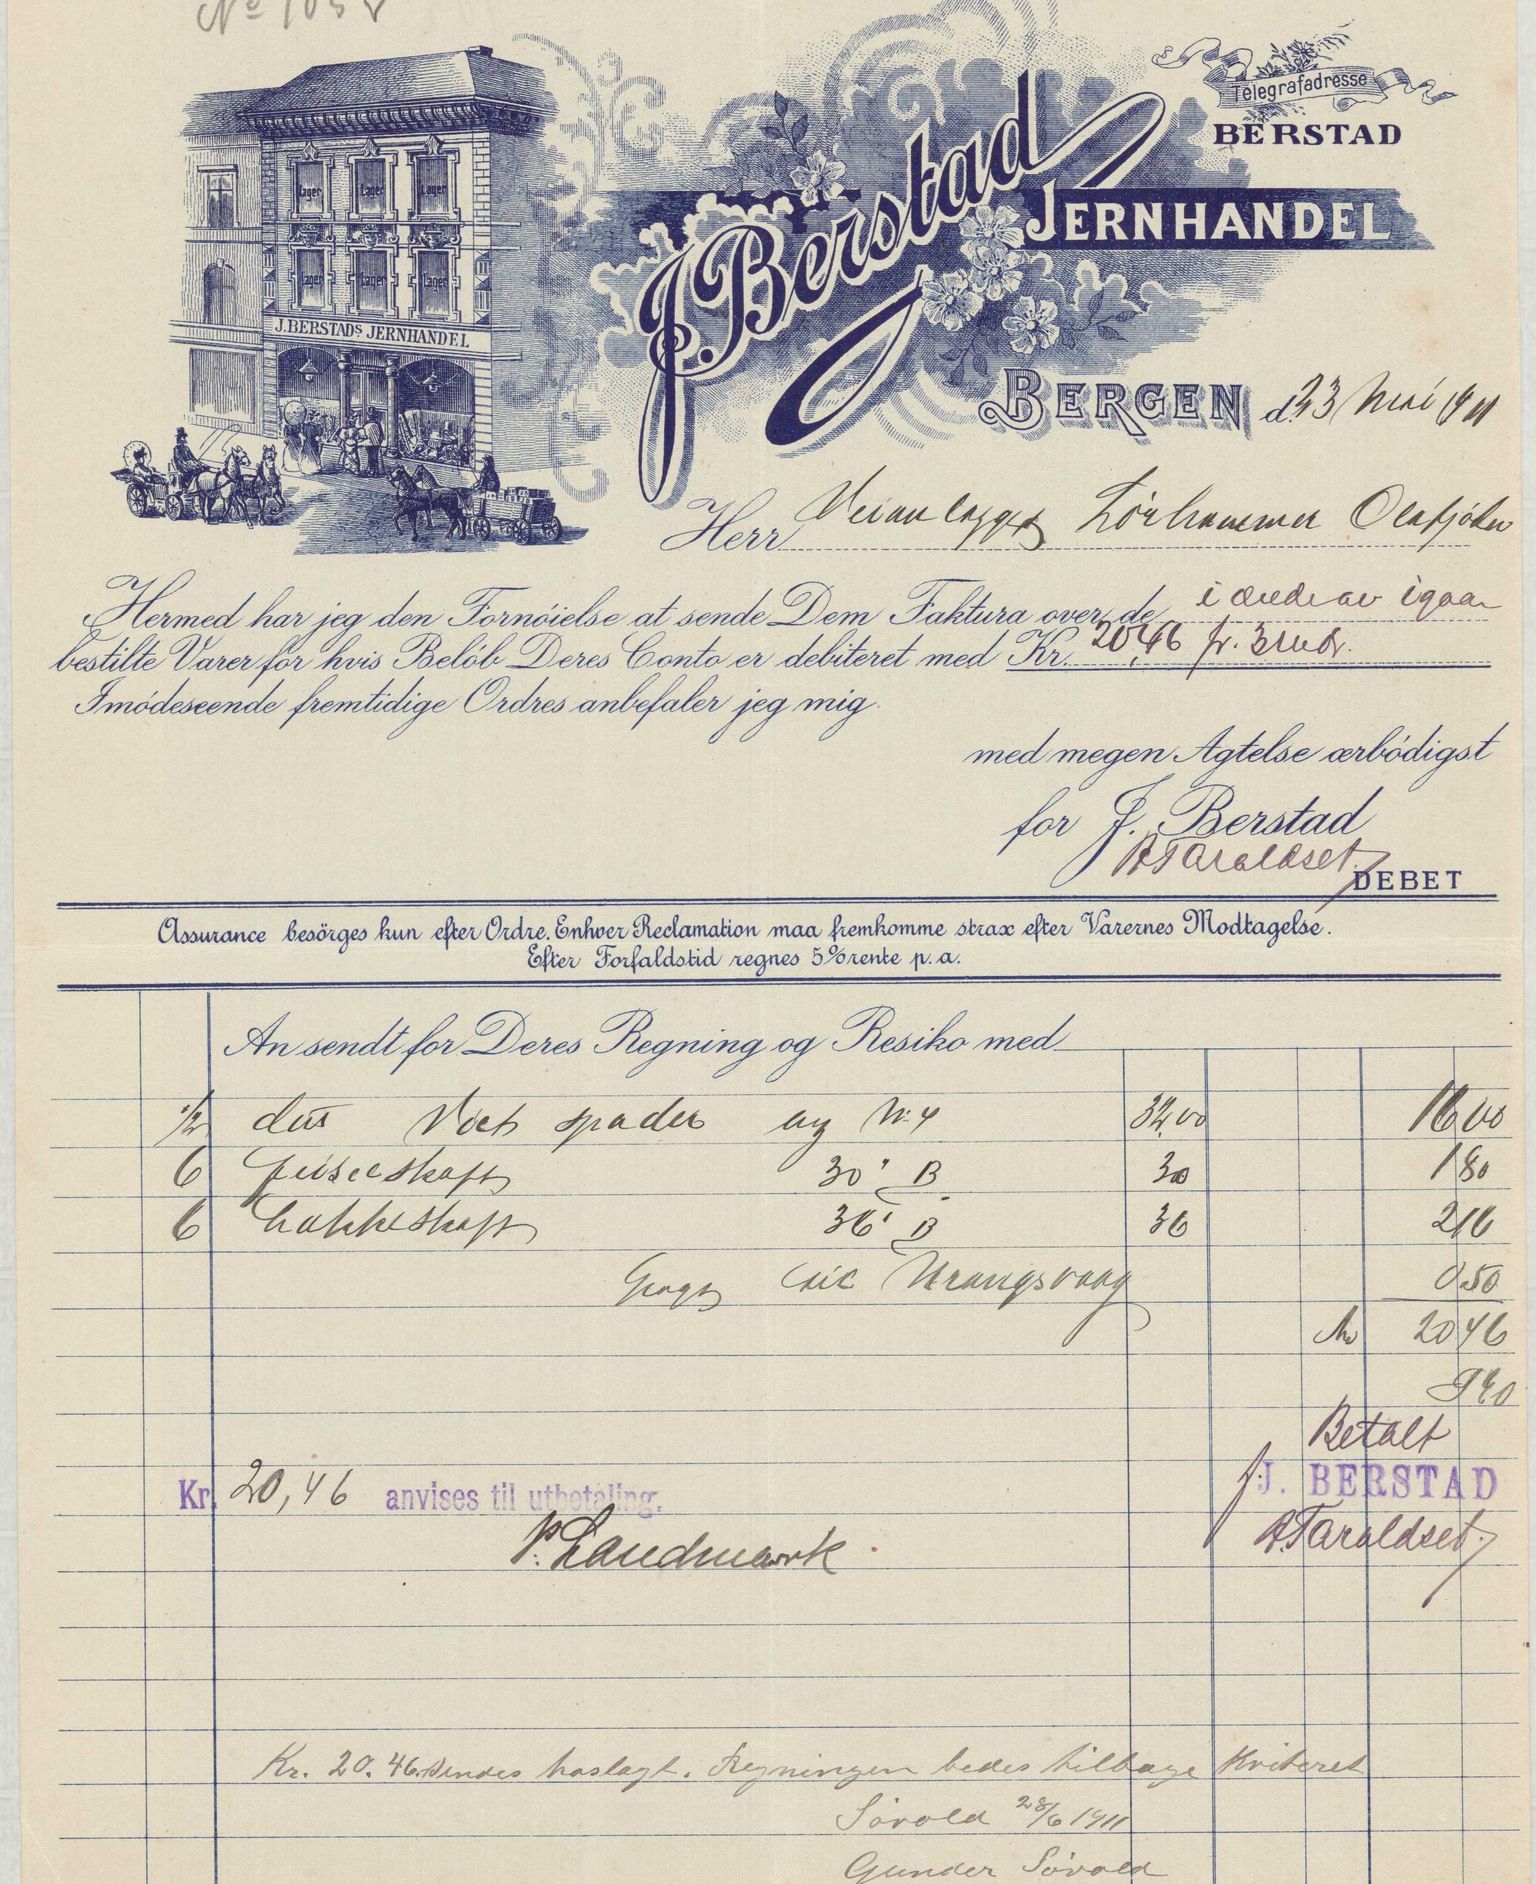 No 105
Telegrafadresse
BERSTAD
J. Berstad
JERNHANDEL
Lager Lager Lager
Lager Lager Lager
J. BERSTADS JERNHANDEL
BERGEN d. 23 Mai 1911
Herr Veianlegget Lörhammer
Hermed har jeg den Fornöielse at sende Dem Faktura over de i ordre av igaar
bestilte Varer for hvis Belöb Deres Conto er debiteret med Kr. 20,46 pr. 3 mdr.
Imödeseende fremtidige Ordres anbefaler jeg mig.
med megen Agtelse ærbödigst
for J. Berstad
A Taraldset
DEBET
Assurance besörges kun efter Ordre. Enhver Reclamation maa fremkomme strax efter Varernes Modtagelse.
Efter Forfaldstid regnes 5% rente p. a.
An sendt for Deres Regning og Resiko med
1/2 dus spader No 4 32,00 16 00
6 feiseskaft 30" B 30 1 80
6 hakkeskaft 36" B 36 2 16
Fragt til Vrangsvaag 0 50
Kr 20 46
Betalt
Kr. 20,46 anvises til utbetaling.
f. J. BERSTAD
A. Taraldset
P. Landmark
Kr. 20.46 sendes hoslagt. Regningen bedes tilbage kviteret
Sövold 28/6 1911
Gunder Sövold